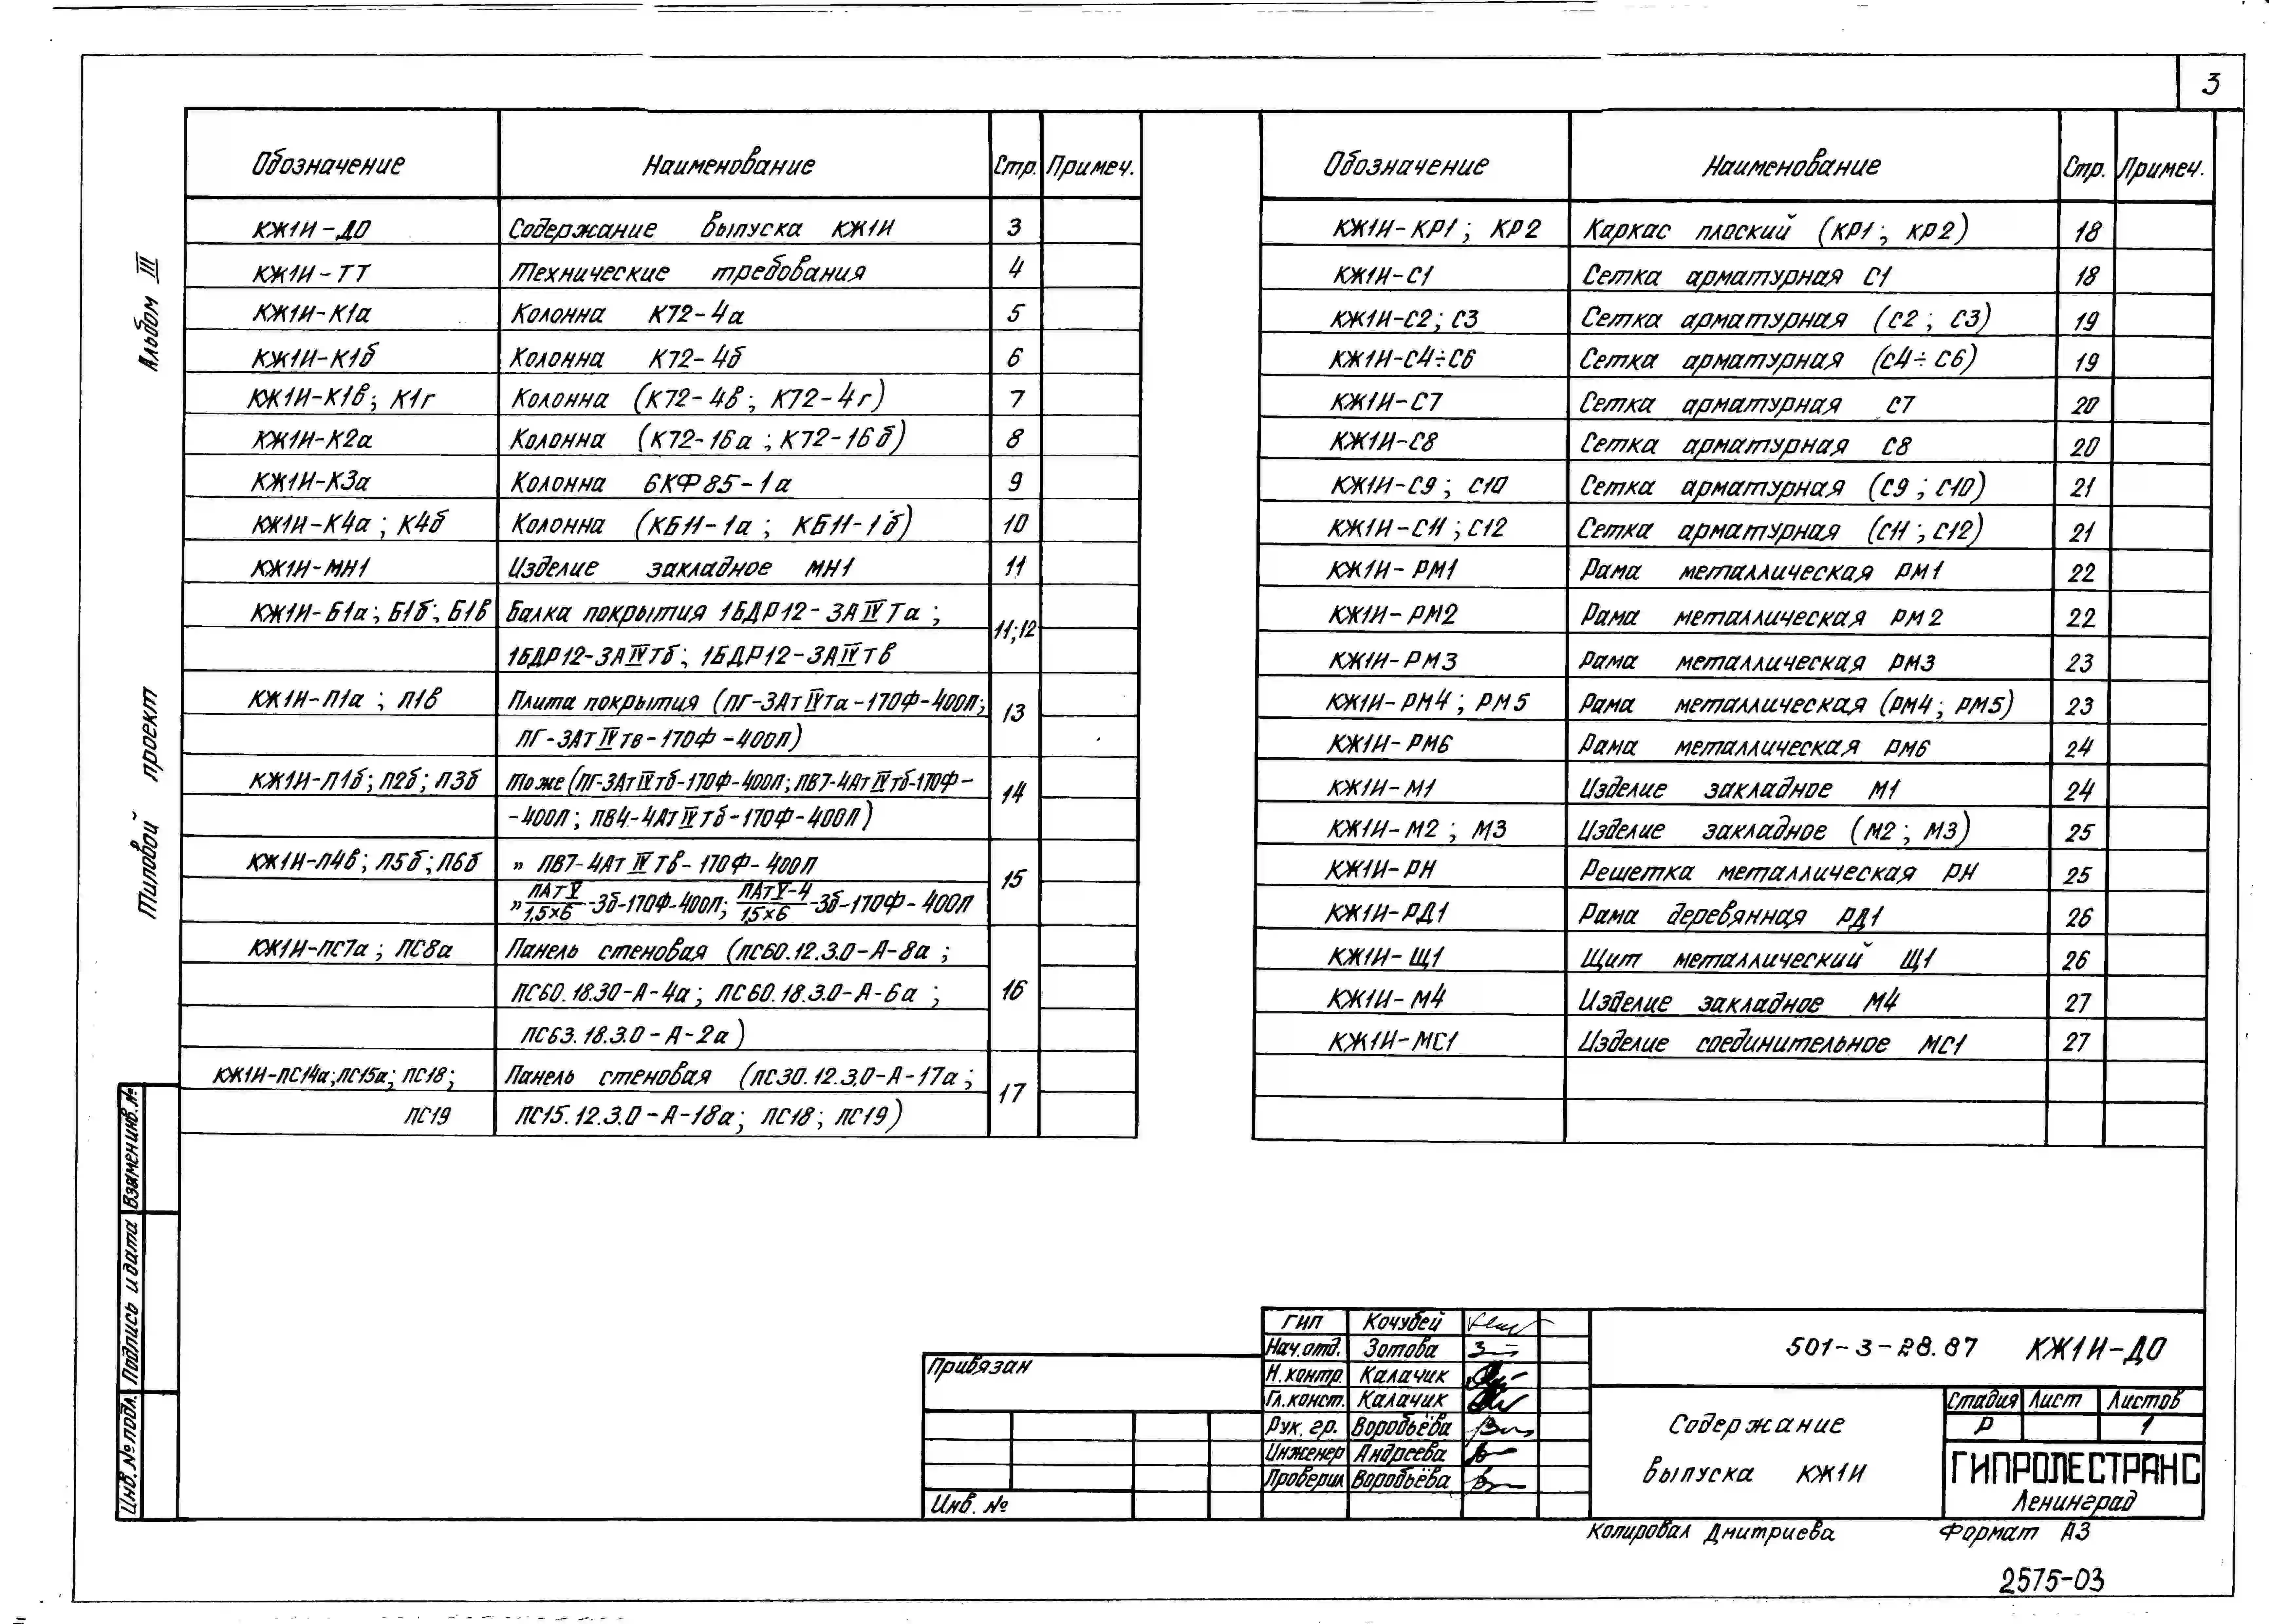 3
Альбом III
Типовой проект
Обозначение Наименование Стр. Примеч.
КЖ1И-ДО Содержание выпуска КЖ1И 3
КЖ1И-ТТ Технические требования 4
КЖ1И-К1а Колонна К72-4а 5
КЖ1И-К1б Колонна К72-4б 6
КЖ1И-К1в; К1г Колонна (К72-4в; К72-4г) 7
КЖ1И-К2а Колонна (К72-16а; К72-16б) 8
КЖ1И-К3а Колонна 6КФ85-1а 9
КЖ1И-К4а; К4б Колонна (КБ11-1а; КБ11-1б) 10
КЖ1И-МН1 Изделие закладное МН1 11
КЖ1И-Б1а; Б1б; Б1в Балка покрытия 1БДР12-3АIVТа; 11;12
1БДР12-3АIVТб; 1БДР12-3АIVТв
КЖ1И-П1а; П1в Плита покрытия (ПГ-3АтIVТа-170Ф-400П; 13
ПГ-3АтIVтв-170Ф-400П)
КЖ1И-П1б; П2б; П3б То же (ПГ-3АтIVтб-170Ф-400П; ПВ7-4АтIVтб-170Ф- 14
-400П; ПВ4-4АтIVтб-170Ф-400П)
КЖ1И-П4в; П5б; П6б " ПВ7-4АтIVТв-170Ф-400П 15
" ПАтV/1,5×6-3б-170Ф-400П; ПАтV-4/1,5×6-3б-170Ф-400П
КЖ1И-ПС7а; ПС8а Панель стеновая (ПС60.12.3.0-А-8а; 16
ПС60.18.30-А-4а; ПС60.18.3.0-А-6а;
ПС63.18.3.0-А-2а)
КЖ1И-ПС14а; ПС15а; ПС18; Панель стеновая (ПС30.12.3,0-А-17а; 17
ПС19 ПС15.12.3.0-А-18а; ПС18; ПС19)
Обозначение Наименование Стр. Примеч.
КЖ1И-КР1; КР2 Каркас плоский (КР1; КР2) 18
КЖ1И-С1 Сетка арматурная С1 18
КЖ1И-С2; С3 Сетка арматурная (С2; С3) 19
КЖ1И-С4÷С6 Сетка арматурная (С4÷С6) 19
КЖ1И-С7 Сетка арматурная С7 20
КЖ1И-С8 Сетка арматурная С8 20
КЖ1И-С9; С10 Сетка арматурная (С9; С10) 21
КЖ1И-С11; С12 Сетка арматурная (С11; С12) 21
КЖ1И-РМ1 Рама металлическая РМ1 22
КЖ1И-РМ2 Рама металлическая РМ2 22
КЖ1И-РМ3 Рама металлическая РМ3 23
КЖ1И-РМ4; РМ5 Рама металлическая (РМ4; РМ5) 23
КЖ1И-РМ6 Рама металлическая РМ6 24
КЖ1И-М1 Изделие закладное М1 24
КЖ1И-М2; М3 Изделие закладное (М2; М3) 25
КЖ1И-РН Решетка металлическая РН 25
КЖ1И-РД1 Рама деревянная РД1 26
КЖ1И-Щ1 Щит металлический Щ1 26
КЖ1И-М4 Изделие закладное М4 27
КЖ1И-МС1 Изделие соединительное МС1 27
Взамен инв.№
Подпись и дата
Инв.№ подл.
Привязан
Инв. №
ГИП Кочубей
Нач.отд. Зотова
Н.контр. Калачик
Гл.конст. Калачик
Рук. гр. Воробьёва
Инженер Андреева
Проверил Воробьёва
501-3-28.87 КЖ1И-ДО
Содержание
выпуска КЖ1И
Стадия Лист Листов
Р 1
ГИПРОЛЕСТРАНС
Ленинград
Копировал Дмитриева Формат А3
2575-03